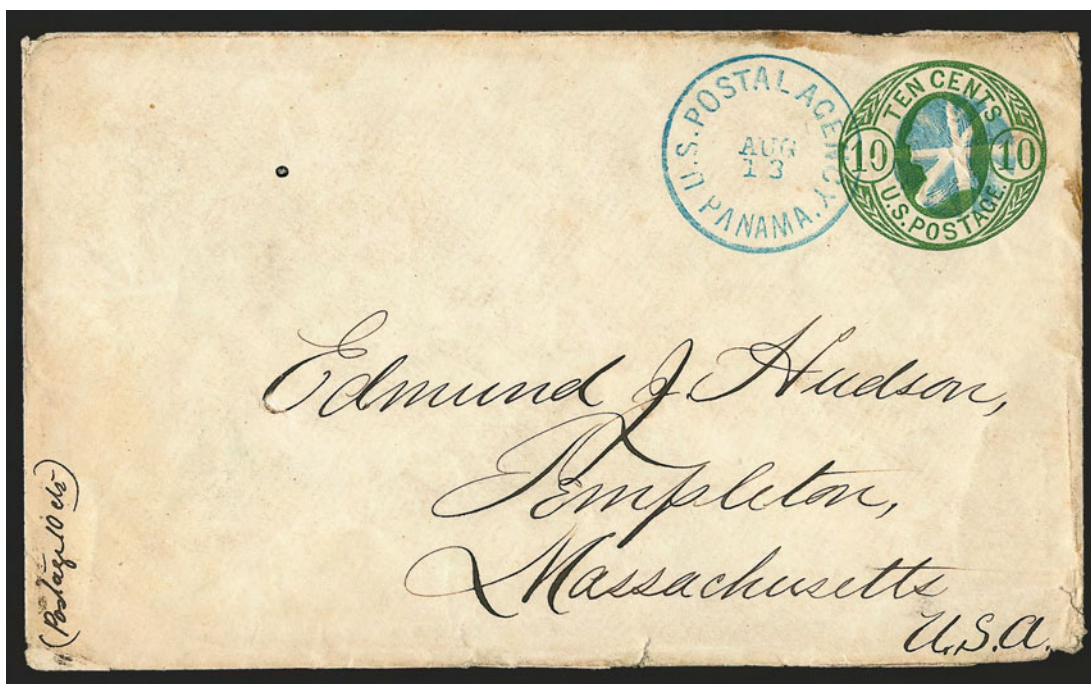 U.S. POSTAL AGENCY
AUG
13
PANAMA.
TEN CENTS
10 10
U.S. POSTAGE.
Edmund J. Hudson,
Templeton,
Massachusetts
U.S.A.
(Postage 10 cts)